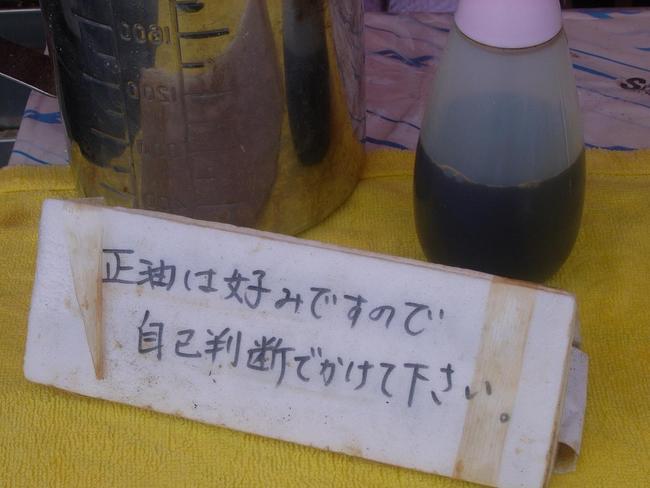 正油は好みですので
自己判断でかけて下さい。